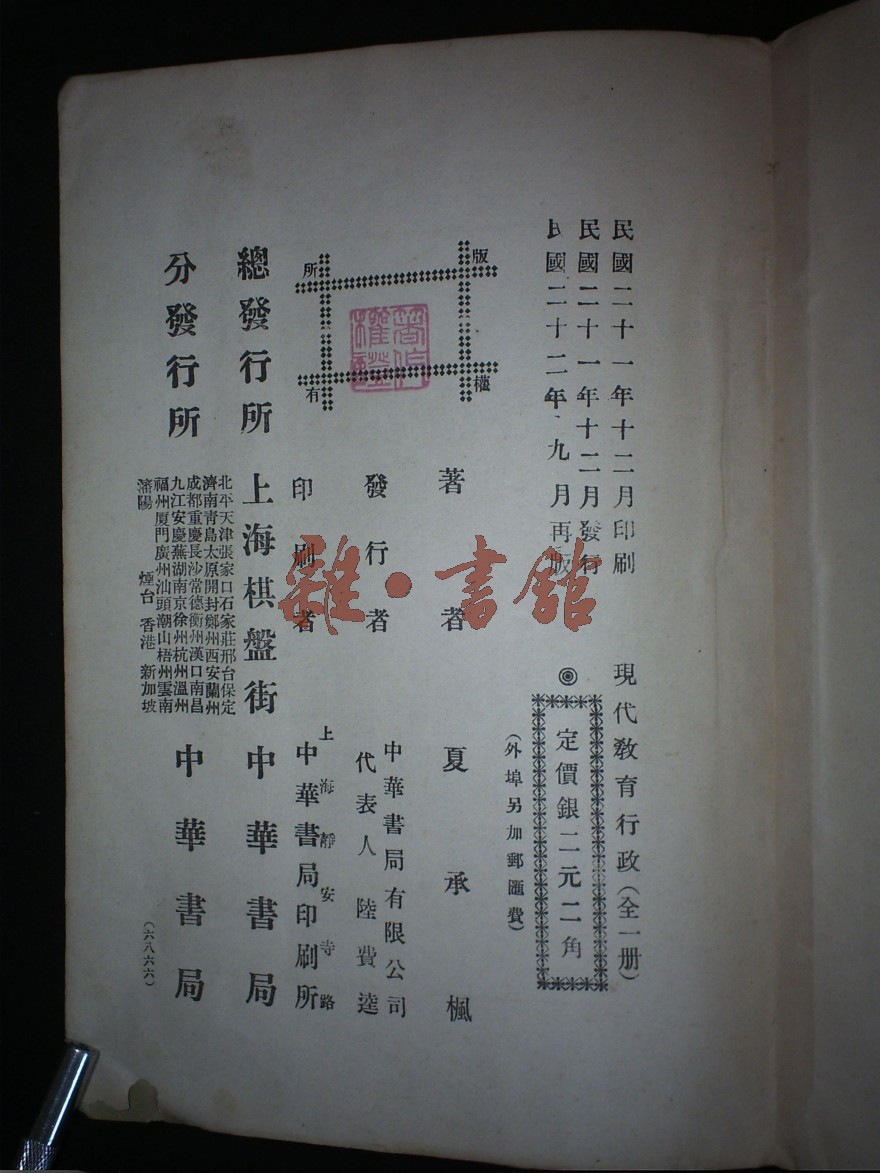 民國二十一年十二月印刷
民國二十一年十二月發行
民國二十二年九月再版
現代教育行政(全一册)
◎
定價銀二元二角
(外埠另加郵匯費)
版權所有
著者 夏承楓
發行者 中華書局有限公司
代表人 陸費逵
印刷者 上海靜安寺路
中華書局印刷所
總發行所 上海棋盤街 中華書局
分發行所
北平天津張家口石家莊邢台保定
濟南青島太原開封鄭州西安蘭州
成都重慶長沙常德衡州漢口南昌
九江安慶蕪湖南京徐州杭州溫州
福州厦門廣州汕頭潮山梧州雲南
瀋陽 煙台 香港 新加坡
中華書局
(六八六六)
雜·書館